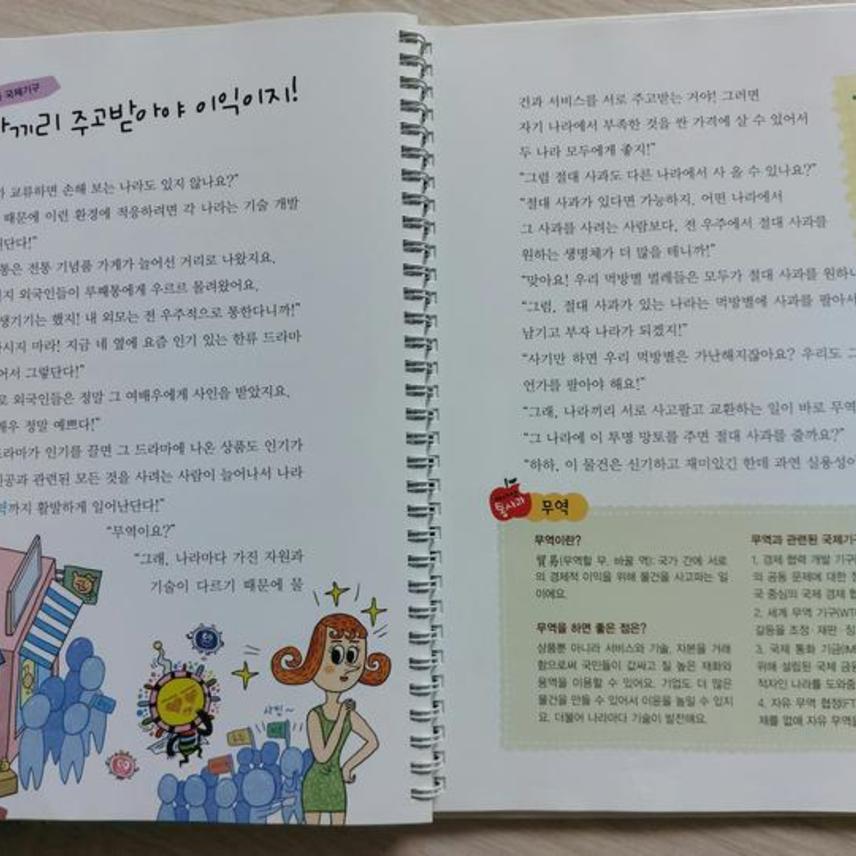 국제기구
끼리 주고받아야 이익이지!
교류하면 손해 보는 나라도 있지 않나요?"
때문에 이런 환경에 적응하려면 각 나라는 기술 개발
단다!"
통은 전통 기념품 가게가 늘어선 거리로 나왔지요.
외국인들이 루째통에게 우르르 몰려왔어요.
생기기는 했지! 내 외모는 전 우주적으로 통한다니까!"
마라! 지금 네 옆에 요즘 인기 있는 한류 드라마
그렇단다!"
외국인들은 정말 그 여배우에게 사인을 받았지요.
정말 예쁘다!"
드라마가 인기를 끌면 그 드라마에 나온 상품도 인기가
관련된 모든 것을 사려는 사람이 늘어나서 나라
까지 활발하게 일어난단다!"
"무역이요?"
"그래, 나라마다 가진 자원과
기술이 다르기 때문에 물
사인~
건과 서비스를 서로 주고받는 거야! 그러면
자기 나라에서 부족한 것을 싼 가격에 살 수 있어서
두 나라 모두에게 좋지!"
"그럼 절대 사과도 다른 나라에서 사 올 수 있나요?"
"절대 사과가 있다면 가능하지. 어떤 나라에서
그 사과를 사려는 사람보다, 전 우주에서 절대 사과를
원하는 생명체가 더 많을 테니까!"
"맞아요! 우리 먹방별 벌레들은 모두가 절대 사과를 원하
"그럼, 절대 사과가 있는 나라는 먹방별에 사과를 팔아서
남기고 부자 나라가 되겠지!"
"사기만 하면 우리 먹방별은 가난해지잖아요? 우리도
언가를 팔아야 해요!"
"그래, 나라끼리 서로 사고팔고 교환하는 일이 바로 무역
"그 나라에 이 투명 망토를 주면 절대 사과를 줄까요?"
"하하, 이 물건은 신기하고 재미있긴 한데 과연 실용성이
통사과
무역
무역이란?
貿易(무역할 무, 바꿀 역): 국가 간에 서로
의 경제적 이익을 위해 물건을 사고파는 일
이에요.
무역을 하면 좋은 점은?
상품뿐 아니라 서비스와 기술, 자본을 거래
함으로써 국민들이 값싸고 질 높은 재화와
용역을 이용할 수 있어요. 기업도 더 많은
물건을 만들 수 있어서 이윤을 높일 수 있지
요. 더불어 나라마다 기술이 발전해요.
무역과 관련된 국제기구
1. 경제 협력 개발 기구
의 공동 문제에 대한
국 중심의 국제 경제
2. 세계 무역 기구(WT
갈등을 조정·재판·
3. 국제 통화 기금(IM
위해 설립된 국제 금융
적자인 나라를 도와줌
4. 자유 무역 협정(FT
제를 없애 자유 무역을